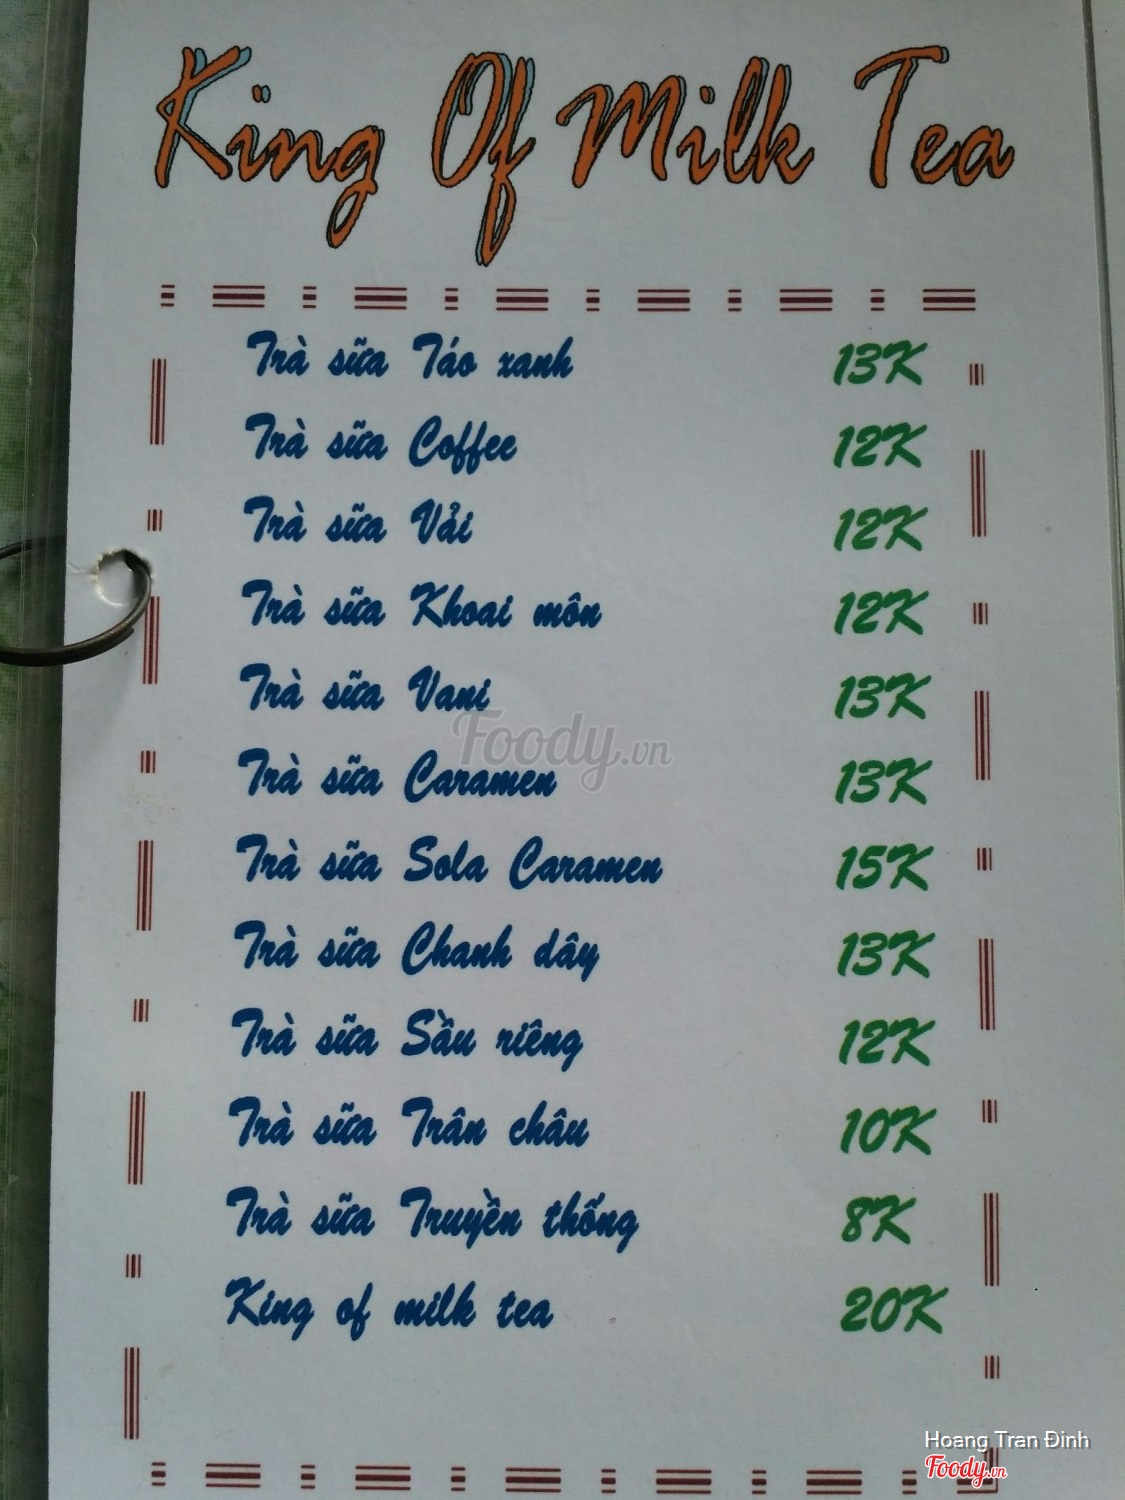 King Of Milk Tea
Trà sữa Táo xanh 13K
Trà sữa Coffee 12K
Trà sữa Vải 12K
Trà sữa Khoai môn 12K
Trà sữa Vani 13K
Foody.vn
Trà sữa Caramen 13K
Trà sữa Sola Caramen 15K
Trà sữa Chanh dây 13K
Trà sữa Sầu riêng 12K
Trà sữa Trân châu 10K
Trà sữa Truyền thống 8K
King of milk tea 20K
Hoang Tran Đinh
Foody.vn